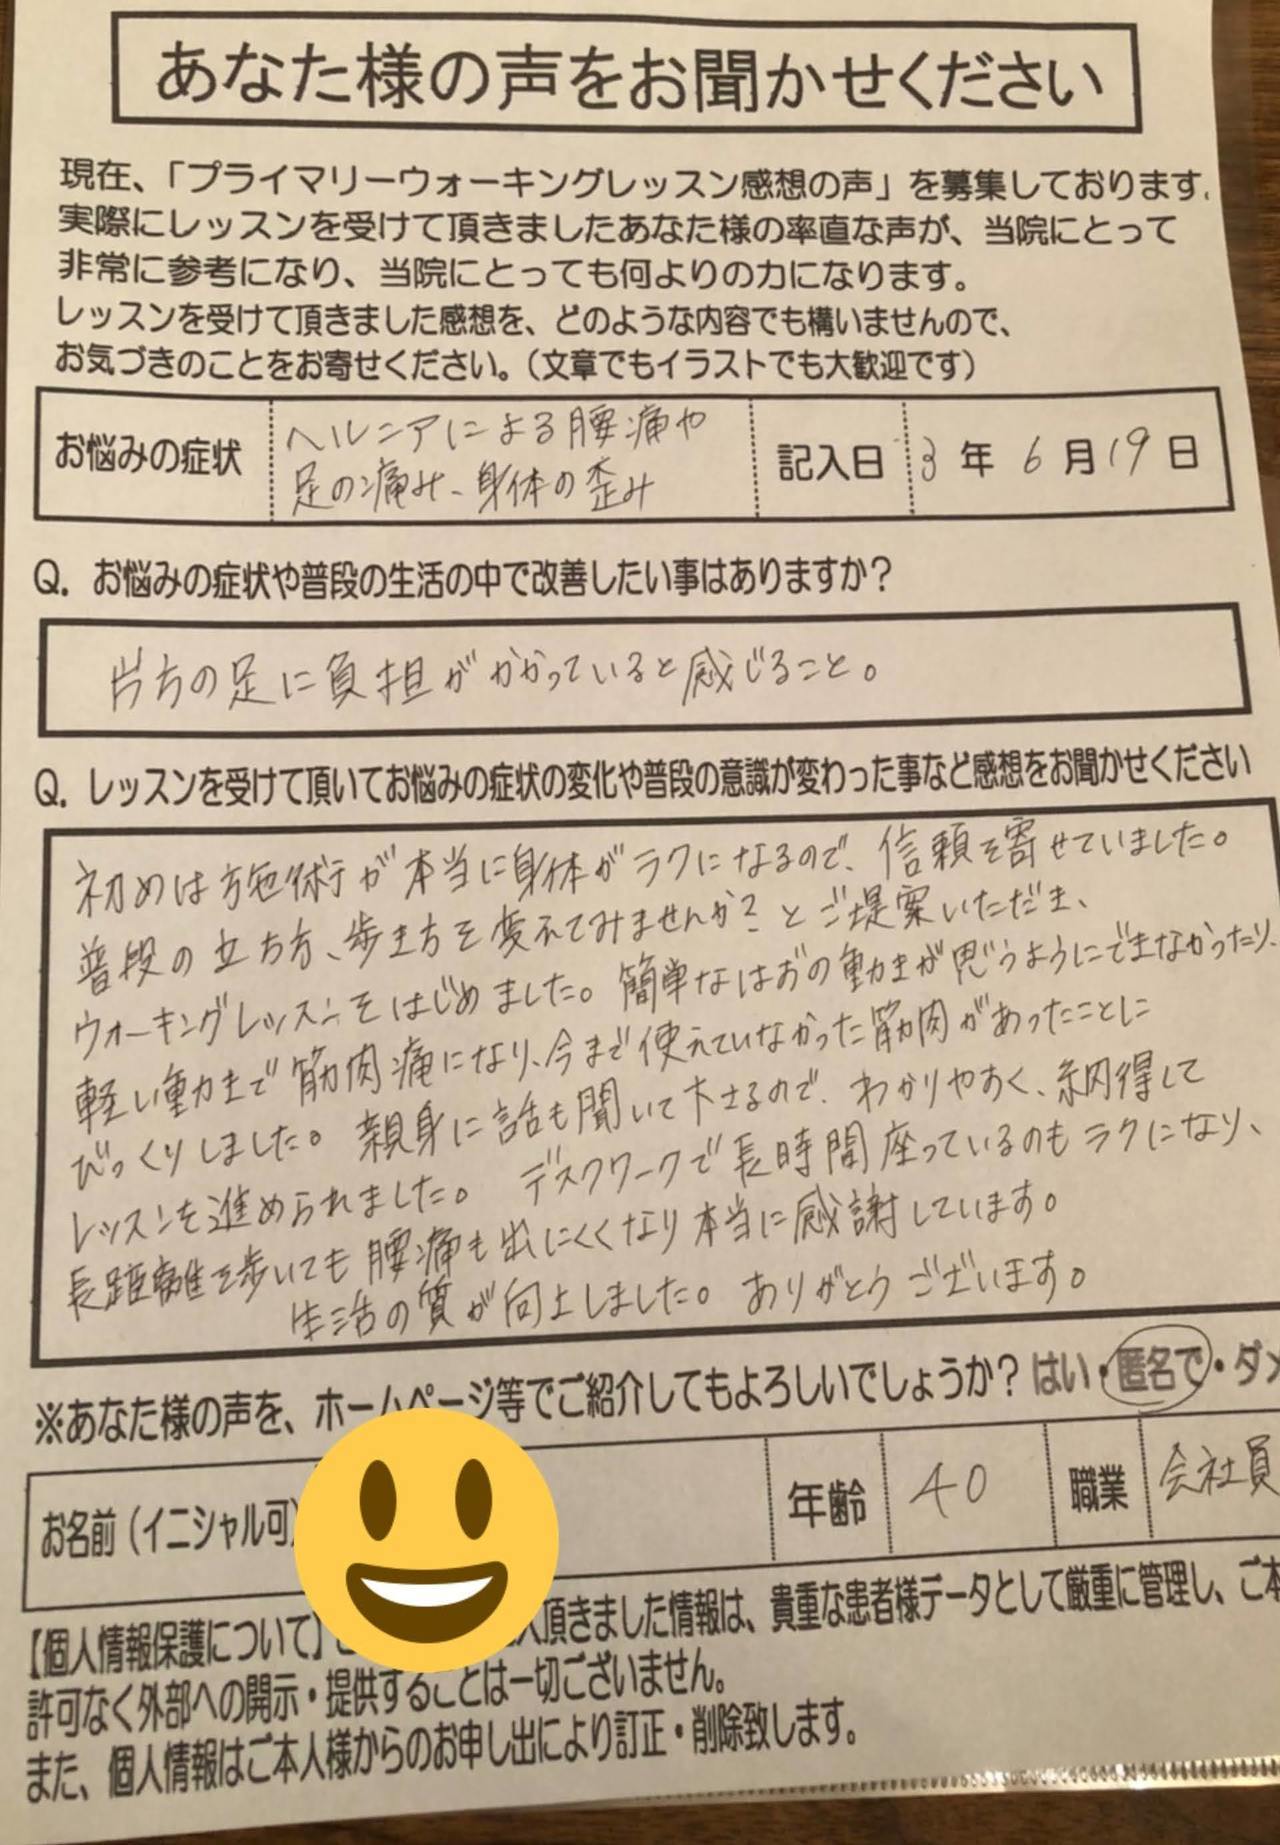 あなた様の声をお聞かせください
現在、「プライマリーウォーキングレッスン感想の声」を募集しております。
実際にレッスンを受けて頂きましたあなた様の率直な声が、当院にとって
非常に参考になり、当院にとっても何よりの力になります。
レッスンを受けて頂きました感想を、どのような内容でも構いませんので、
お気づきのことをお寄せください。（文章でもイラストでも大歓迎です）
お悩みの症状 ヘルニアによる腰痛や 記入日 3年 6月19日
足の痛み、身体の歪み
Q. お悩みの症状や普段の生活の中で改善したい事はありますか？
片方の足に負担がかかっていると感じること。
Q. レッスンを受けて頂いてお悩みの症状の変化や普段の意識が変わった事など感想をお聞かせください
初めは施術が本当に身体がラクになるので、信頼を寄せていました。
普段の立ち方、歩き方を変えてみませんか？とご提案いただき、
ウォーキングレッスンをはじめました。簡単なはずの動きが思うようにできなかったり、
軽い動きで筋肉痛になり、今まで使えていなかった筋肉があったことに
びっくりしました。親身に話も聞いて下さるので、わかりやすく、納得して
レッスンを進められました。デスクワークで長時間座っているのもラクになり、
長距離を歩いても腰痛も出にくくなり本当に感謝しています。
生活の質が向上しました。ありがとうございます。
※あなた様の声を、ホームページ等でご紹介してもよろしいでしょうか？はい・匿名で・ダメ
お名前（イニシャル可） 年齢 40 職業 会社員
【個人情報保護について】 頂きました情報は、貴重な患者様データとして厳重に管理し、ご本
許可なく外部への開示・提供することは一切ございません。
また、個人情報はご本人様からのお申し出により訂正・削除致します。